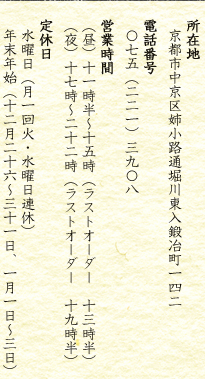 所在地
京都市中京区姉小路通堀川東入鍛冶町一四二
電話番号
〇七五(二二一)三九〇八
営業時間
(昼)十一時半〜十五時(ラストオーダー 十三時半)
(夜)十七時〜二十二時(ラストオーダー 十九時半)
定休日
水曜日(月一回火・水曜日連休)
年末年始(十二月二十六〜三十一日、一月一日〜三日)